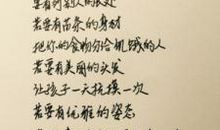 要看到别人的长处
若要有苗条的身材
把你的食物分给饥饿的人
若要有美丽的头发
让孩子一天抚摸一次
若要有优雅的姿态